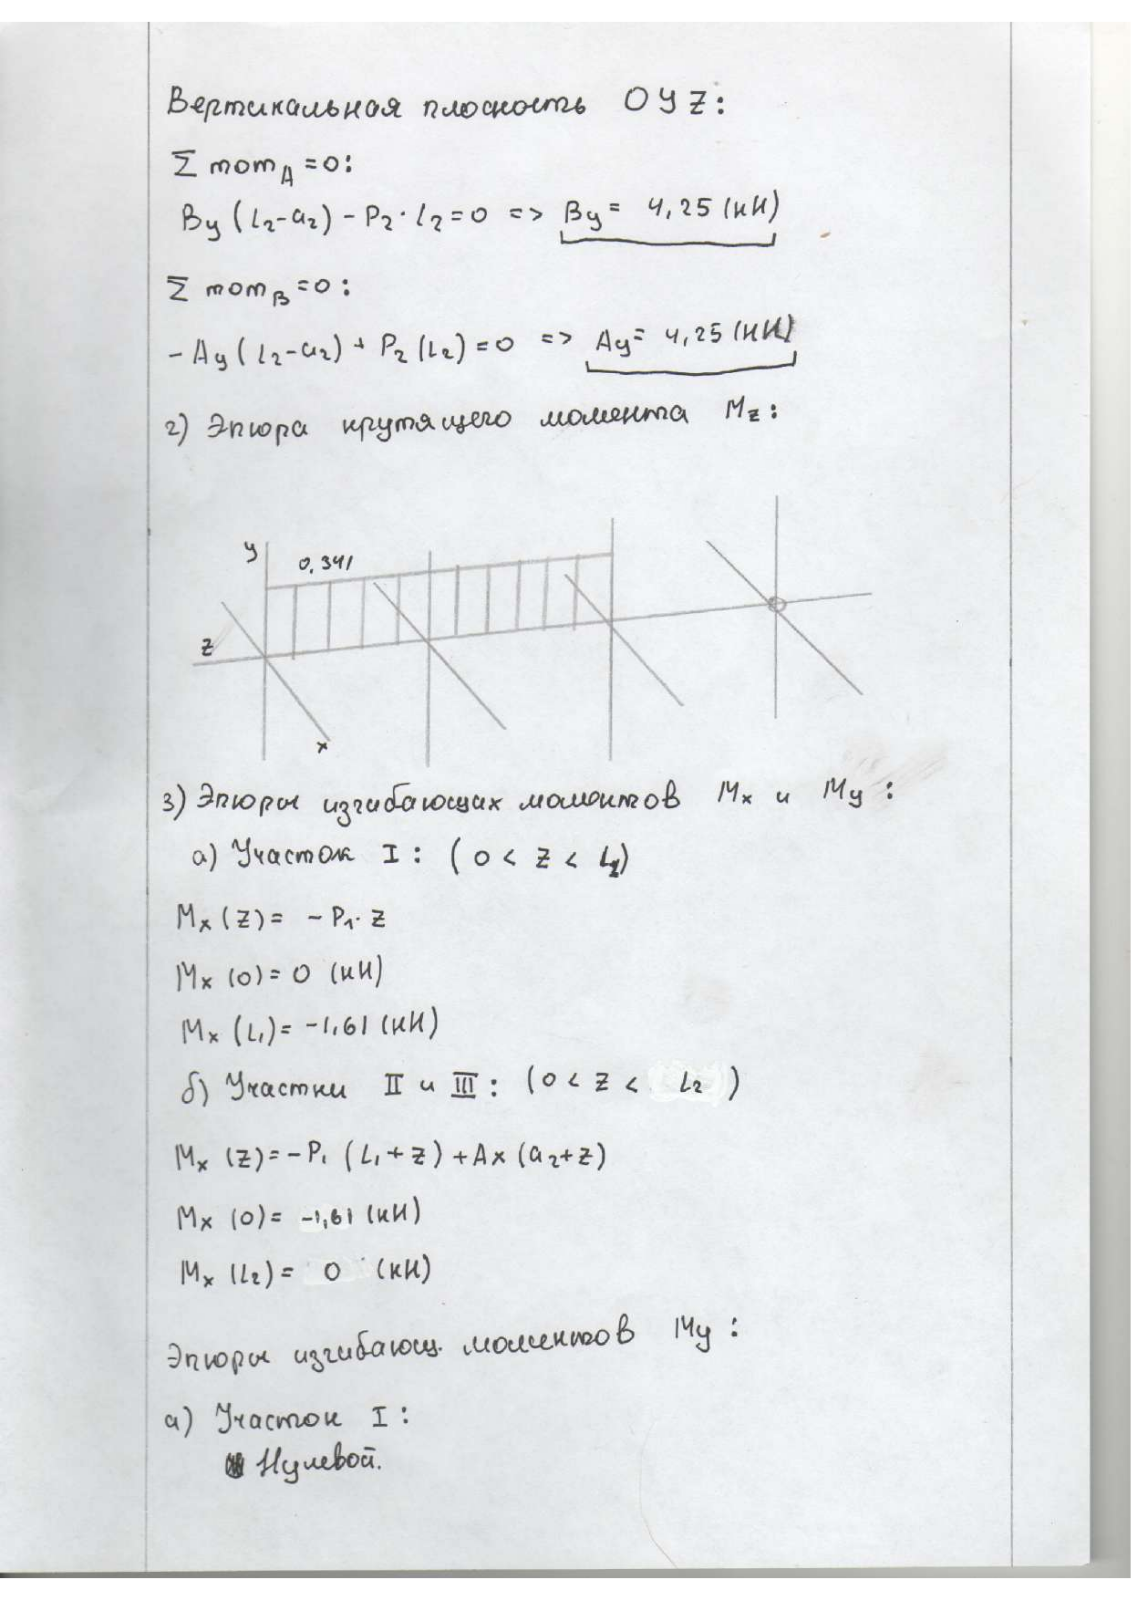 Вертикальная плоскость OYZ:
Σ mom_A = 0:
By (L₂-a₂) - P₂ · L₂ = 0 => By = 4,25 (кН)
Σ mom_B = 0:
- Ay (L₂-a₂) + P₂ (L₂) = 0 => Ay = 4,25 (кН)
2) Эпюра крутящего момента Mz:
y
0,341
z
x
3) Эпюры изгибающих моментов Mx и My:
а) Участок I: (0 < z < L₁)
Mx (z) = - P₁ · z
Mx (0) = 0 (кН)
Mx (L₁) = -1,61 (кН)
б) Участки II и III: (0 < z < L₂)
Mx (z) = - P₁ (L₁ + z) + Ax (a₂+z)
Mx (0) = -1,61 (кН)
Mx (L₂) = 0 (кН)
Эпюры изгибающ. моментов My:
а) Участок I:
Нулевой.